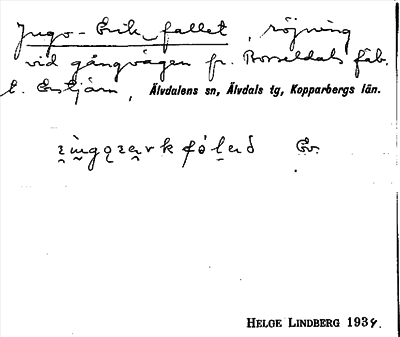 Jugo-Erik-fallet, röjning
vid gångvägen fr. Rosseldals fäb.
t. Enstjärn, Älvdalens sn, Älvdals tg, Kopparbergs län.
Ev.
HELGE LINDBERG 1934.